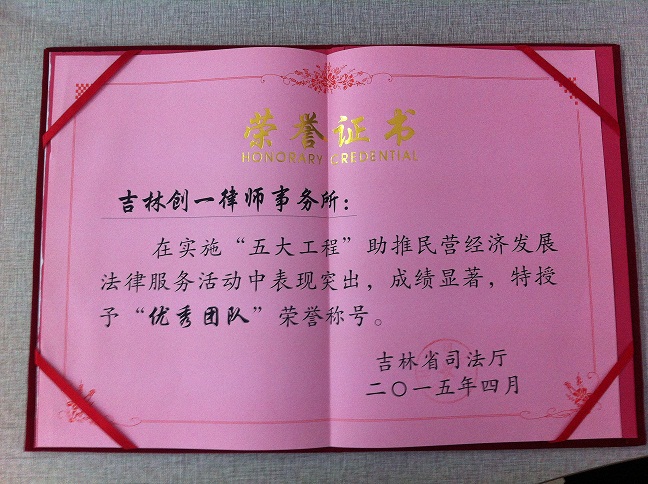 荣誉证书
HONORARY CREDENTIAL
吉林创一律师事务所：
在实施“五大工程”助推民营经济发展
法律服务活动中表现突出，成绩显著，特授
予“优秀团队”荣誉称号。
吉林省司法厅
二〇一五年四月